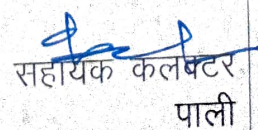 सहायक कलेक्टर
पाली